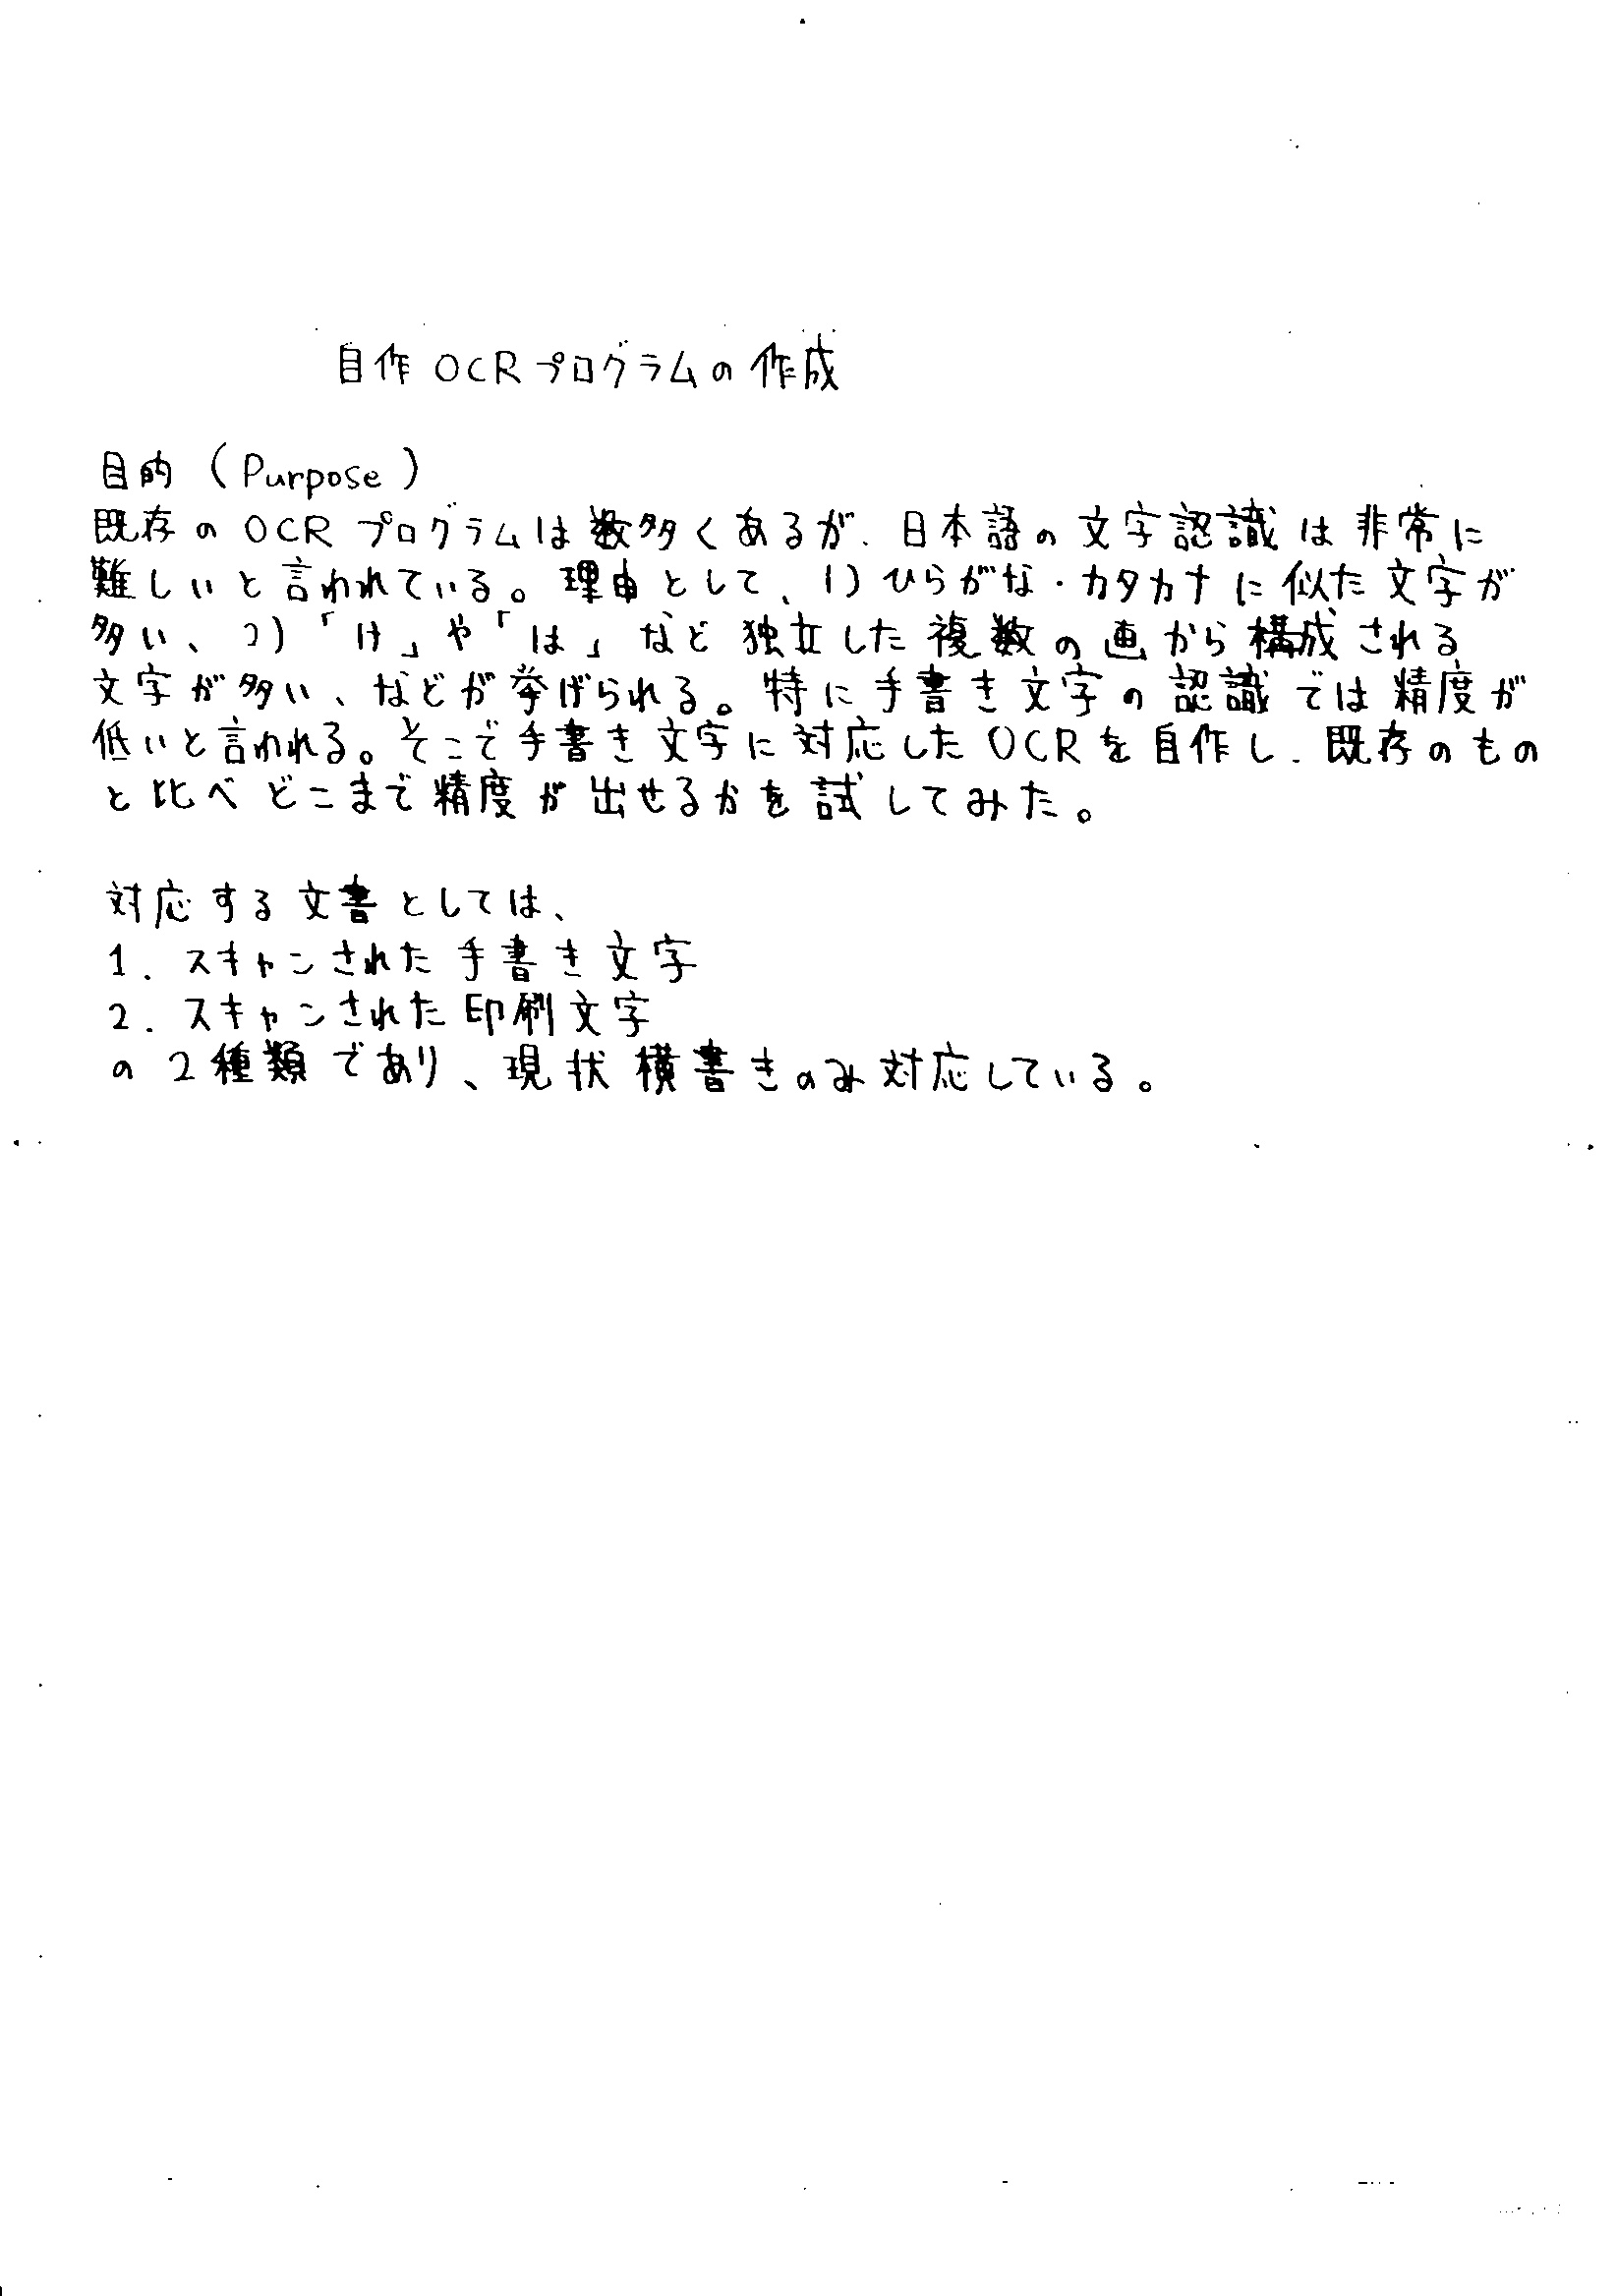 自作OCRプログラムの作成
目的（Purpose）
既存のOCRプログラムは数多くあるが、日本語の文字認識は非常に
難しいと言われている。理由として、1)ひらがな・カタカナに似た文字が
多い、2)「け」や「は」など独立した複数の画から構成される
文字が多い、などが挙げられる。特に手書き文字の認識では精度が
低いと言われる。そこで手書き文字に対応したOCRを自作し、既存のもの
と比べどこまで精度が出せるかを試してみた。
対応する文書としては、
1. スキャンされた手書き文字
2. スキャンされた印刷文字
の2種類であり、現状横書きのみ対応している。